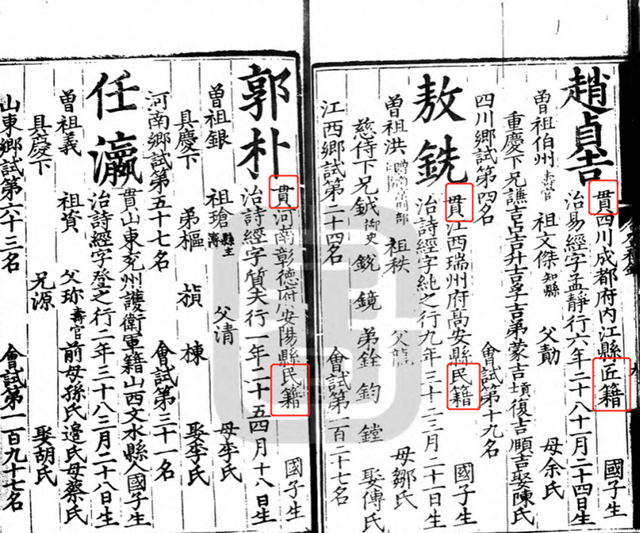 趙貞吉
貫四川成都府內江縣匠籍 國子生
治易經字孟靜行六年二十八十一月二十四日生
曾祖伯州壽官 祖文傑知縣 父勳 母余氏
重慶下兄譙吉占吉升吉孚吉弟蒙吉頊復吉順吉娶陳氏
四川鄉試第四名 會試第十九名
敖銑
貫江西瑞州府高安縣民籍 國子生
治詩經字純之行九年三十三月二十一日生
曾祖洪 祖秩 父龍 母鄒氏
慈侍下兄鉞御史 鋭 鏡 弟銓 鈞 鏜 娶傅氏
江西鄉試第二十四名 會試第一百二十七名
郭朴
貫河南彰德府安陽縣民籍 國子生
治詩經字質夫行一年二十五四月十八日生
曾祖銀 祖瑲縣主簿 父清 母李氏
具慶下 弟樞 楨 棟 娶李氏
河南鄉試第五十七名 會試第三十一名
任瀛
貫山東兗州護衛軍籍山西文水縣人國子生
治詩經字登之行二年三十八三月二十八日生
曾祖義 祖資 父珎壽官 前母孫氏邉氏母蔡氏
具慶下 兄源 娶胡氏
山東鄉試第六十三名 會試第一百九十七名